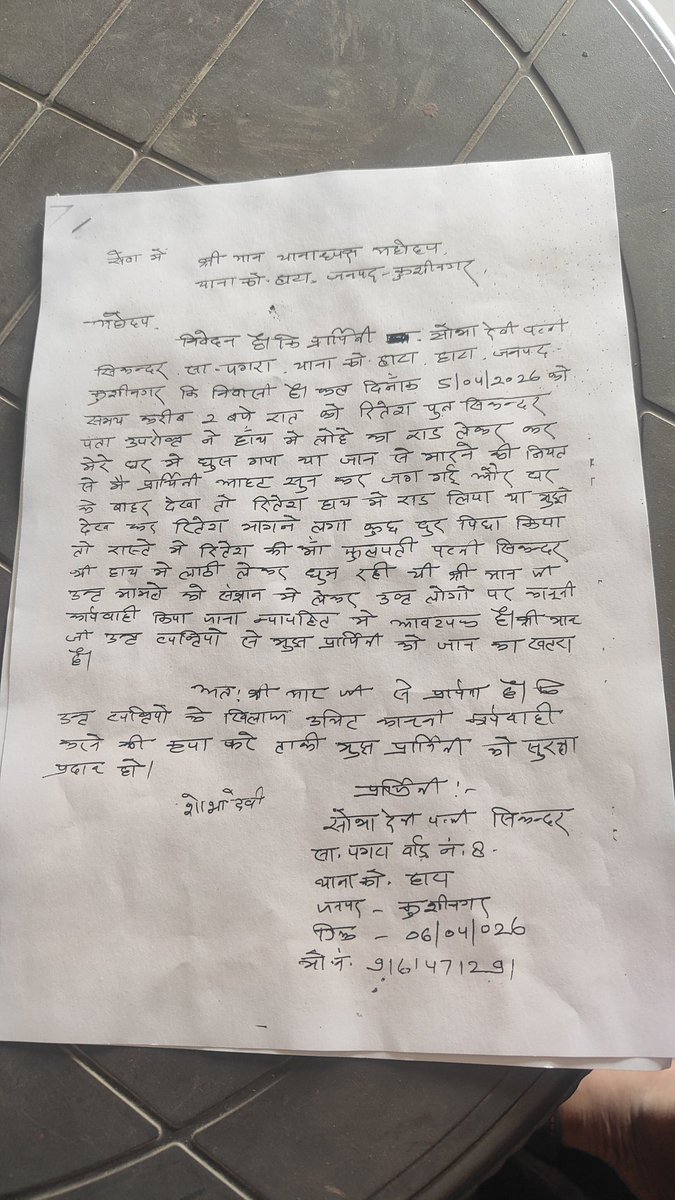 सेवा में श्री मान थानाध्यक्ष महोदय,
थाना को. हाटा, जनपद - कुशीनगर,
महोदय,
निवेदन है। कि प्रार्थिनी सोभा देवी पत्नी
सिकन्दर सा. पगरा, थाना को. हाटा, हाटा, जनपद -
कुशीनगर कि निवासी है। कल दिनाँक 5/04/2026 को
समय करीब 2 बजे रात को रितेश पुत्र सिकन्दर
पता उपरोक्त ने हाँथ मे लोहे का राड लेकर कर
मेरे घर मे घुस गया था जान से मारने की नियत
से मै प्रार्थिनी आहट सुन कर जग गई और घर
के बाहर देखा तो रितेश हाथ मे राड लिया था मुझे
देख कर रितेश भागने लगा कुछ दुर पिछा किया
तो रास्ते मे रितेश की माँ फुलपती पत्नी सिकन्दर
भी हाथ मे लाठी लेकर घुम रही थी श्री मान जी
उक्त मामले को संज्ञान मे लेकर उक्त लोगों पर कानूनी
कार्यवाही किया जाना न्यायहित मे आवश्यक है। श्री मान
जी उक्त व्यक्तियो से मुझ प्रार्थिनी को जान का खतरा
है।
अतः श्री मान जी से प्रार्थना है। कि
उक्त व्यक्तियो के खिलाफ उचित कानूनी कार्यवाही
करने की कृपा करे ताकी मुझ प्रार्थिनी को सुरक्षा
प्रदान हो।
प्रार्थिनी :-
शोभा देवी
सोभा देवी पत्नी सिकन्दर
सा. पगरा वार्ड नं. 8.
थाना को. हाटा
जनपद - कुशीनगर
दिनांक - 06/04/026
मो. नं. 9161471291